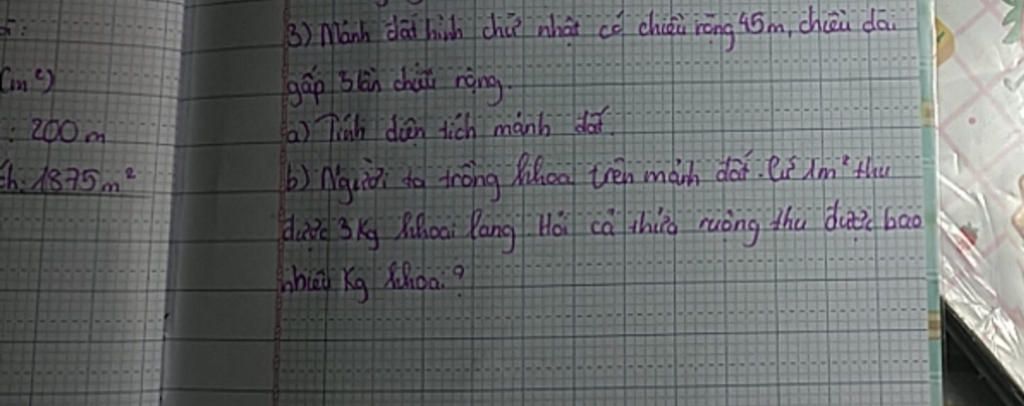 (m²)
3) Mảnh đất hình chữ nhật có chiều rộng 45m, chiều dài
gấp 3 lần chiều rộng.
: 200m
a) Tính diện tích mảnh đất.
ch: 1875m²
b) Người ta trồng khoai trên mảnh đất. Cứ 1m² thu
được 3kg khoai lang Hỏi cả thửa ruộng thu được bao
nhiêu kg khoai?